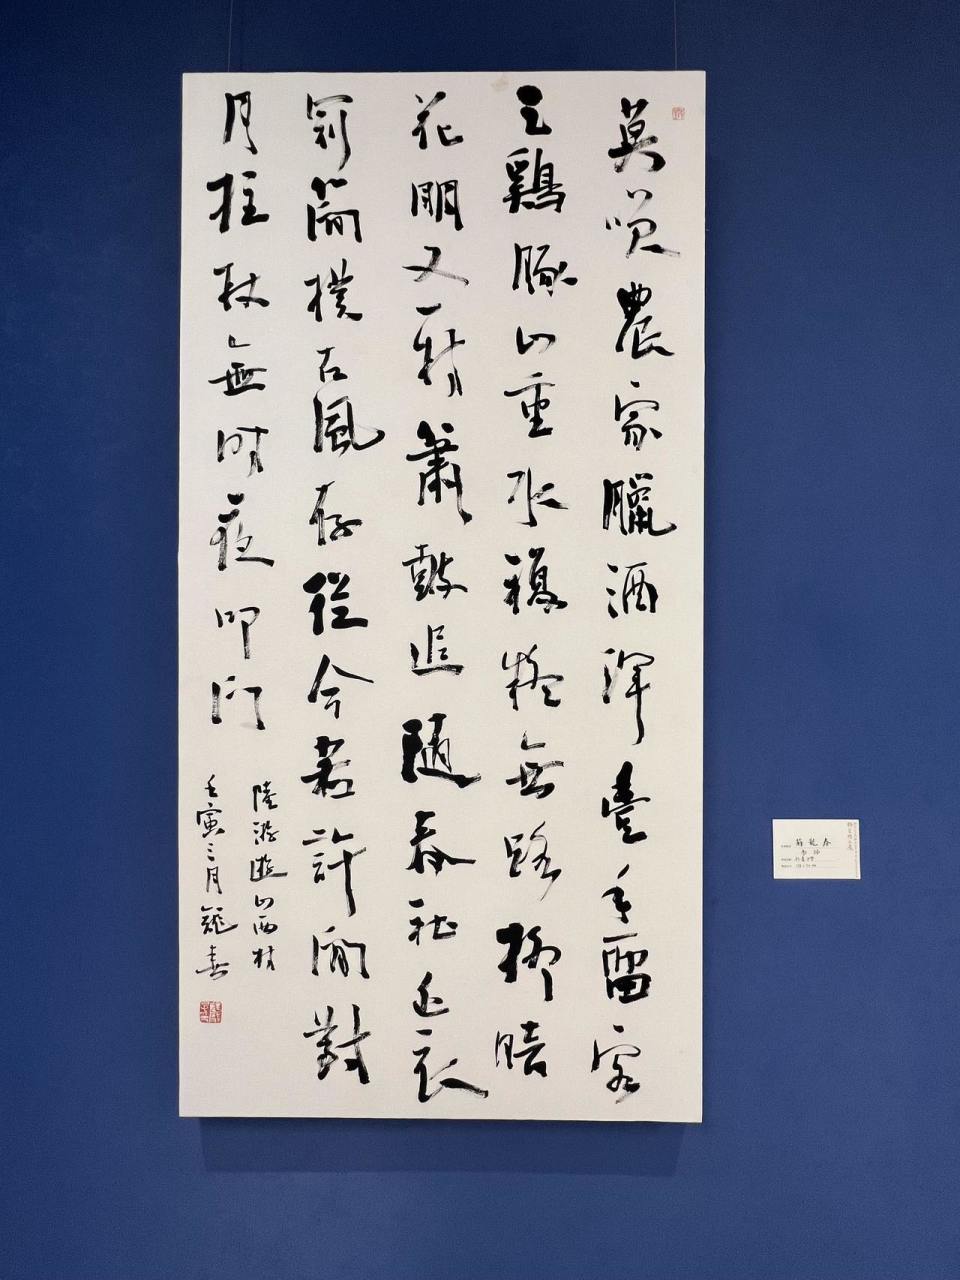 莫咲農家臘酒渾豐年留客
足鷄豚山重水複疑無路柳暗
花明又一村簫鼓追隨春社近衣
冠簡樸古風存從今若許閒對
月拄杖無時夜叩門
陸游遊山西村
壬寅三月龍春
薛龍春